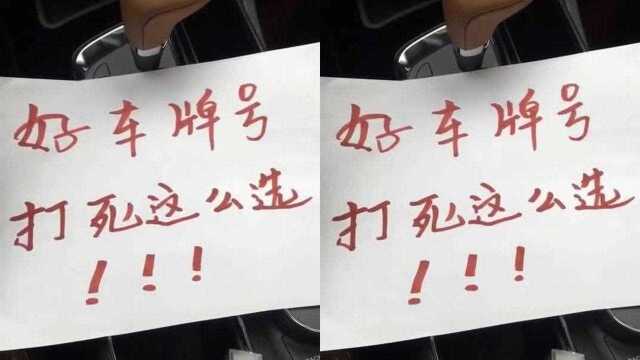 好车牌号 好车牌号
打死这么选 打死这么选
!!! !!!